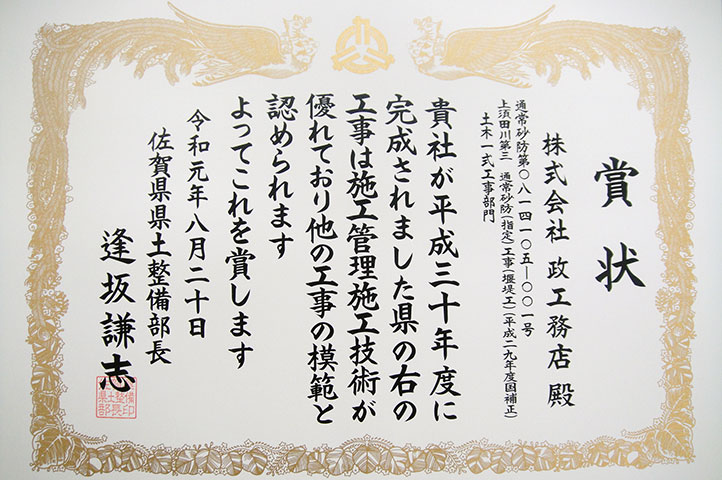 賞状
株式会社 政工務店 殿
通常砂防第〇八一四一〇五―〇〇一号
上須田川第三 通常砂防(指定)工事(堰堤工)(平成二九年度国補正)
土木一式工事部門
貴社が平成三十年度に
完成されました県の右の
工事は施工管理施工技術が
優れており他の工事の模範と
認められます
よってこれを賞します
令和元年八月二十日
佐賀県県土整備部長
逢坂謙志